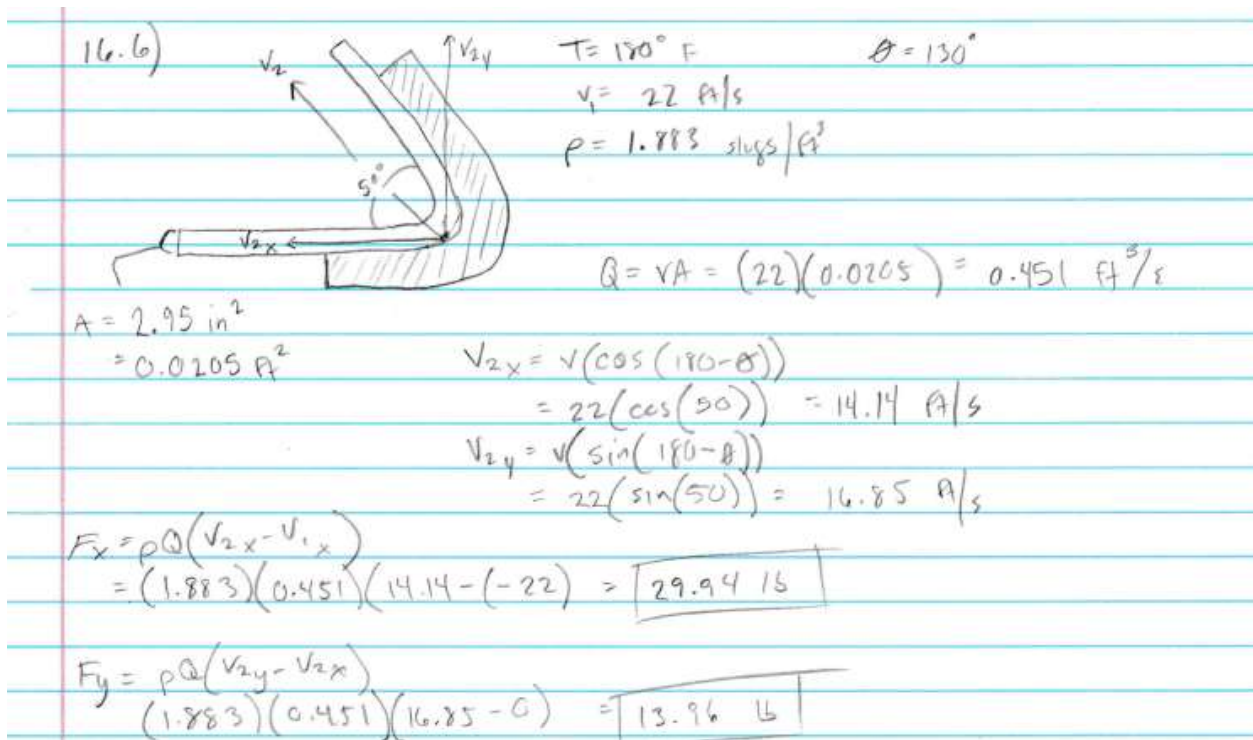 16.6)
T = 180° F
θ = 130°
v₁ = 22 ft/s
ρ = 1.883 slugs/ft³
V₂
V₂y
50°
V₂x
Q = vA = (22)(0.0205) = 0.451 ft³/s
A = 2.95 in²
= 0.0205 ft²
V₂x = v(cos(180-θ))
= 22(cos(50)) = 14.14 ft/s
V₂y = v(sin(180-θ))
= 22(sin(50)) = 16.85 ft/s
Fx = ρQ(V₂x - V₁x)
= (1.883)(0.451)(14.14-(-22) = 29.94 lb
Fy = ρQ(V₂y - V₂x)
(1.883)(0.451)(16.85-0) = 13.96 lb